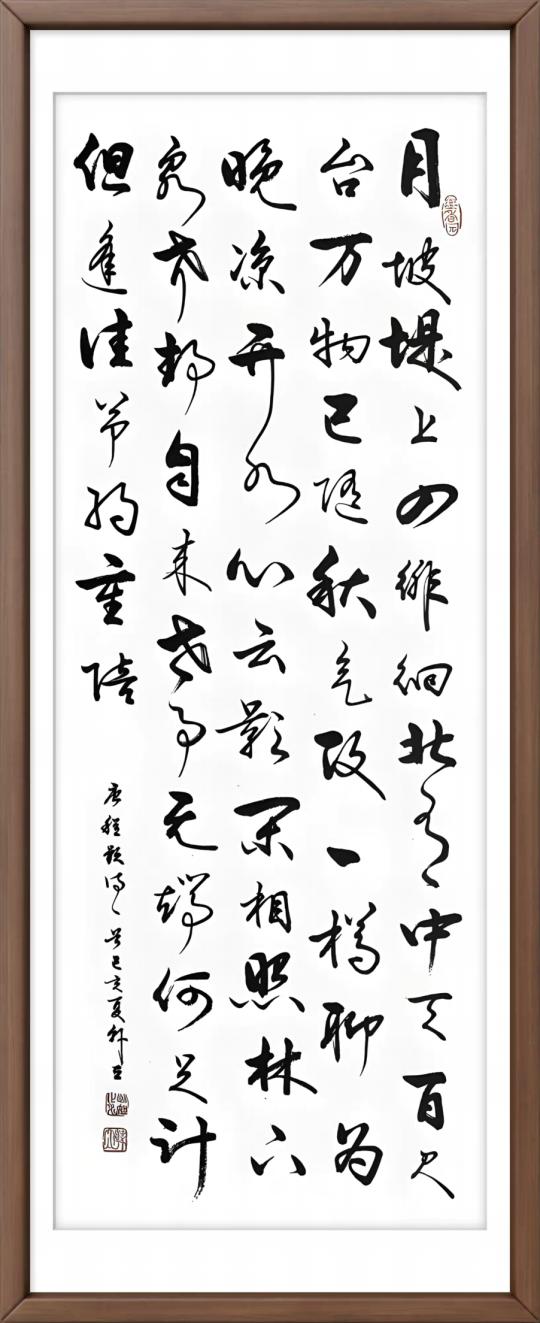 月坡堤上四徘徊北有中天百尺
台万物已随秋气改一樽聊为
晚凉开水心云影闲相照林下
泉声静自来世事无端何足计
但逢佳节约重陪
唐程颢诗 岁己亥夏